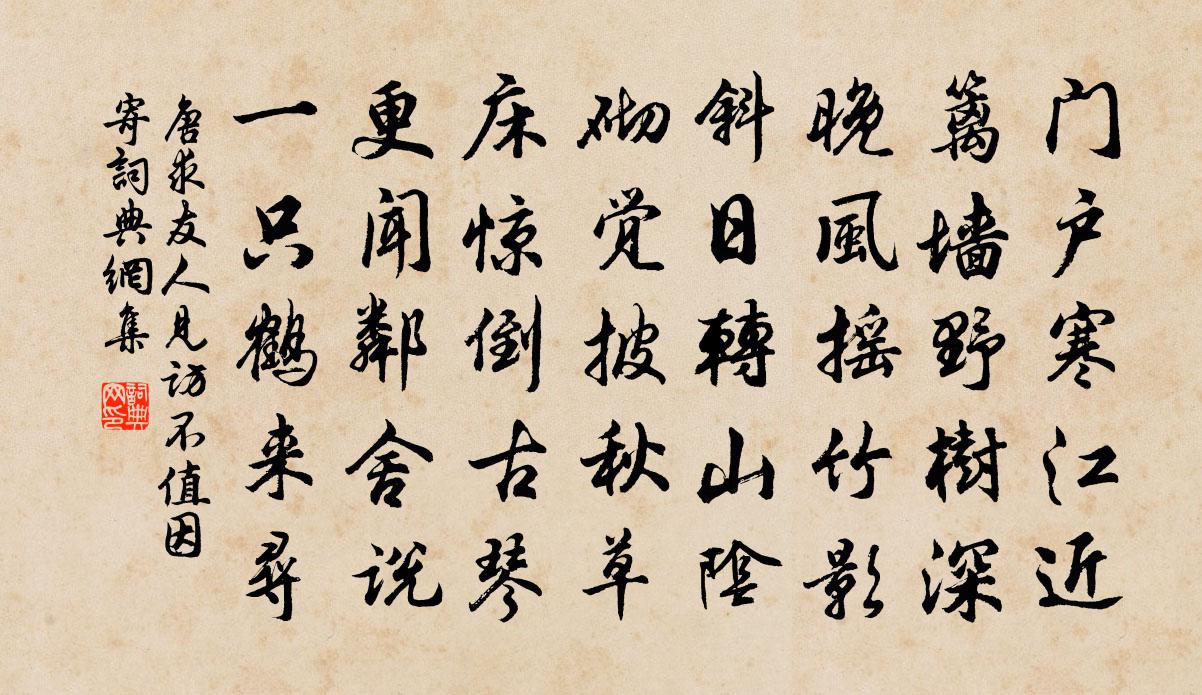 门户寒江近
篱墙野樹深
晚風摇竹影
斜日轉山陰
砌觉披秋草
床惊倒古琴
更闻鄰舍说
一只鹤来尋
唐求友人见访不值因
寄詞典網集
詞典网印